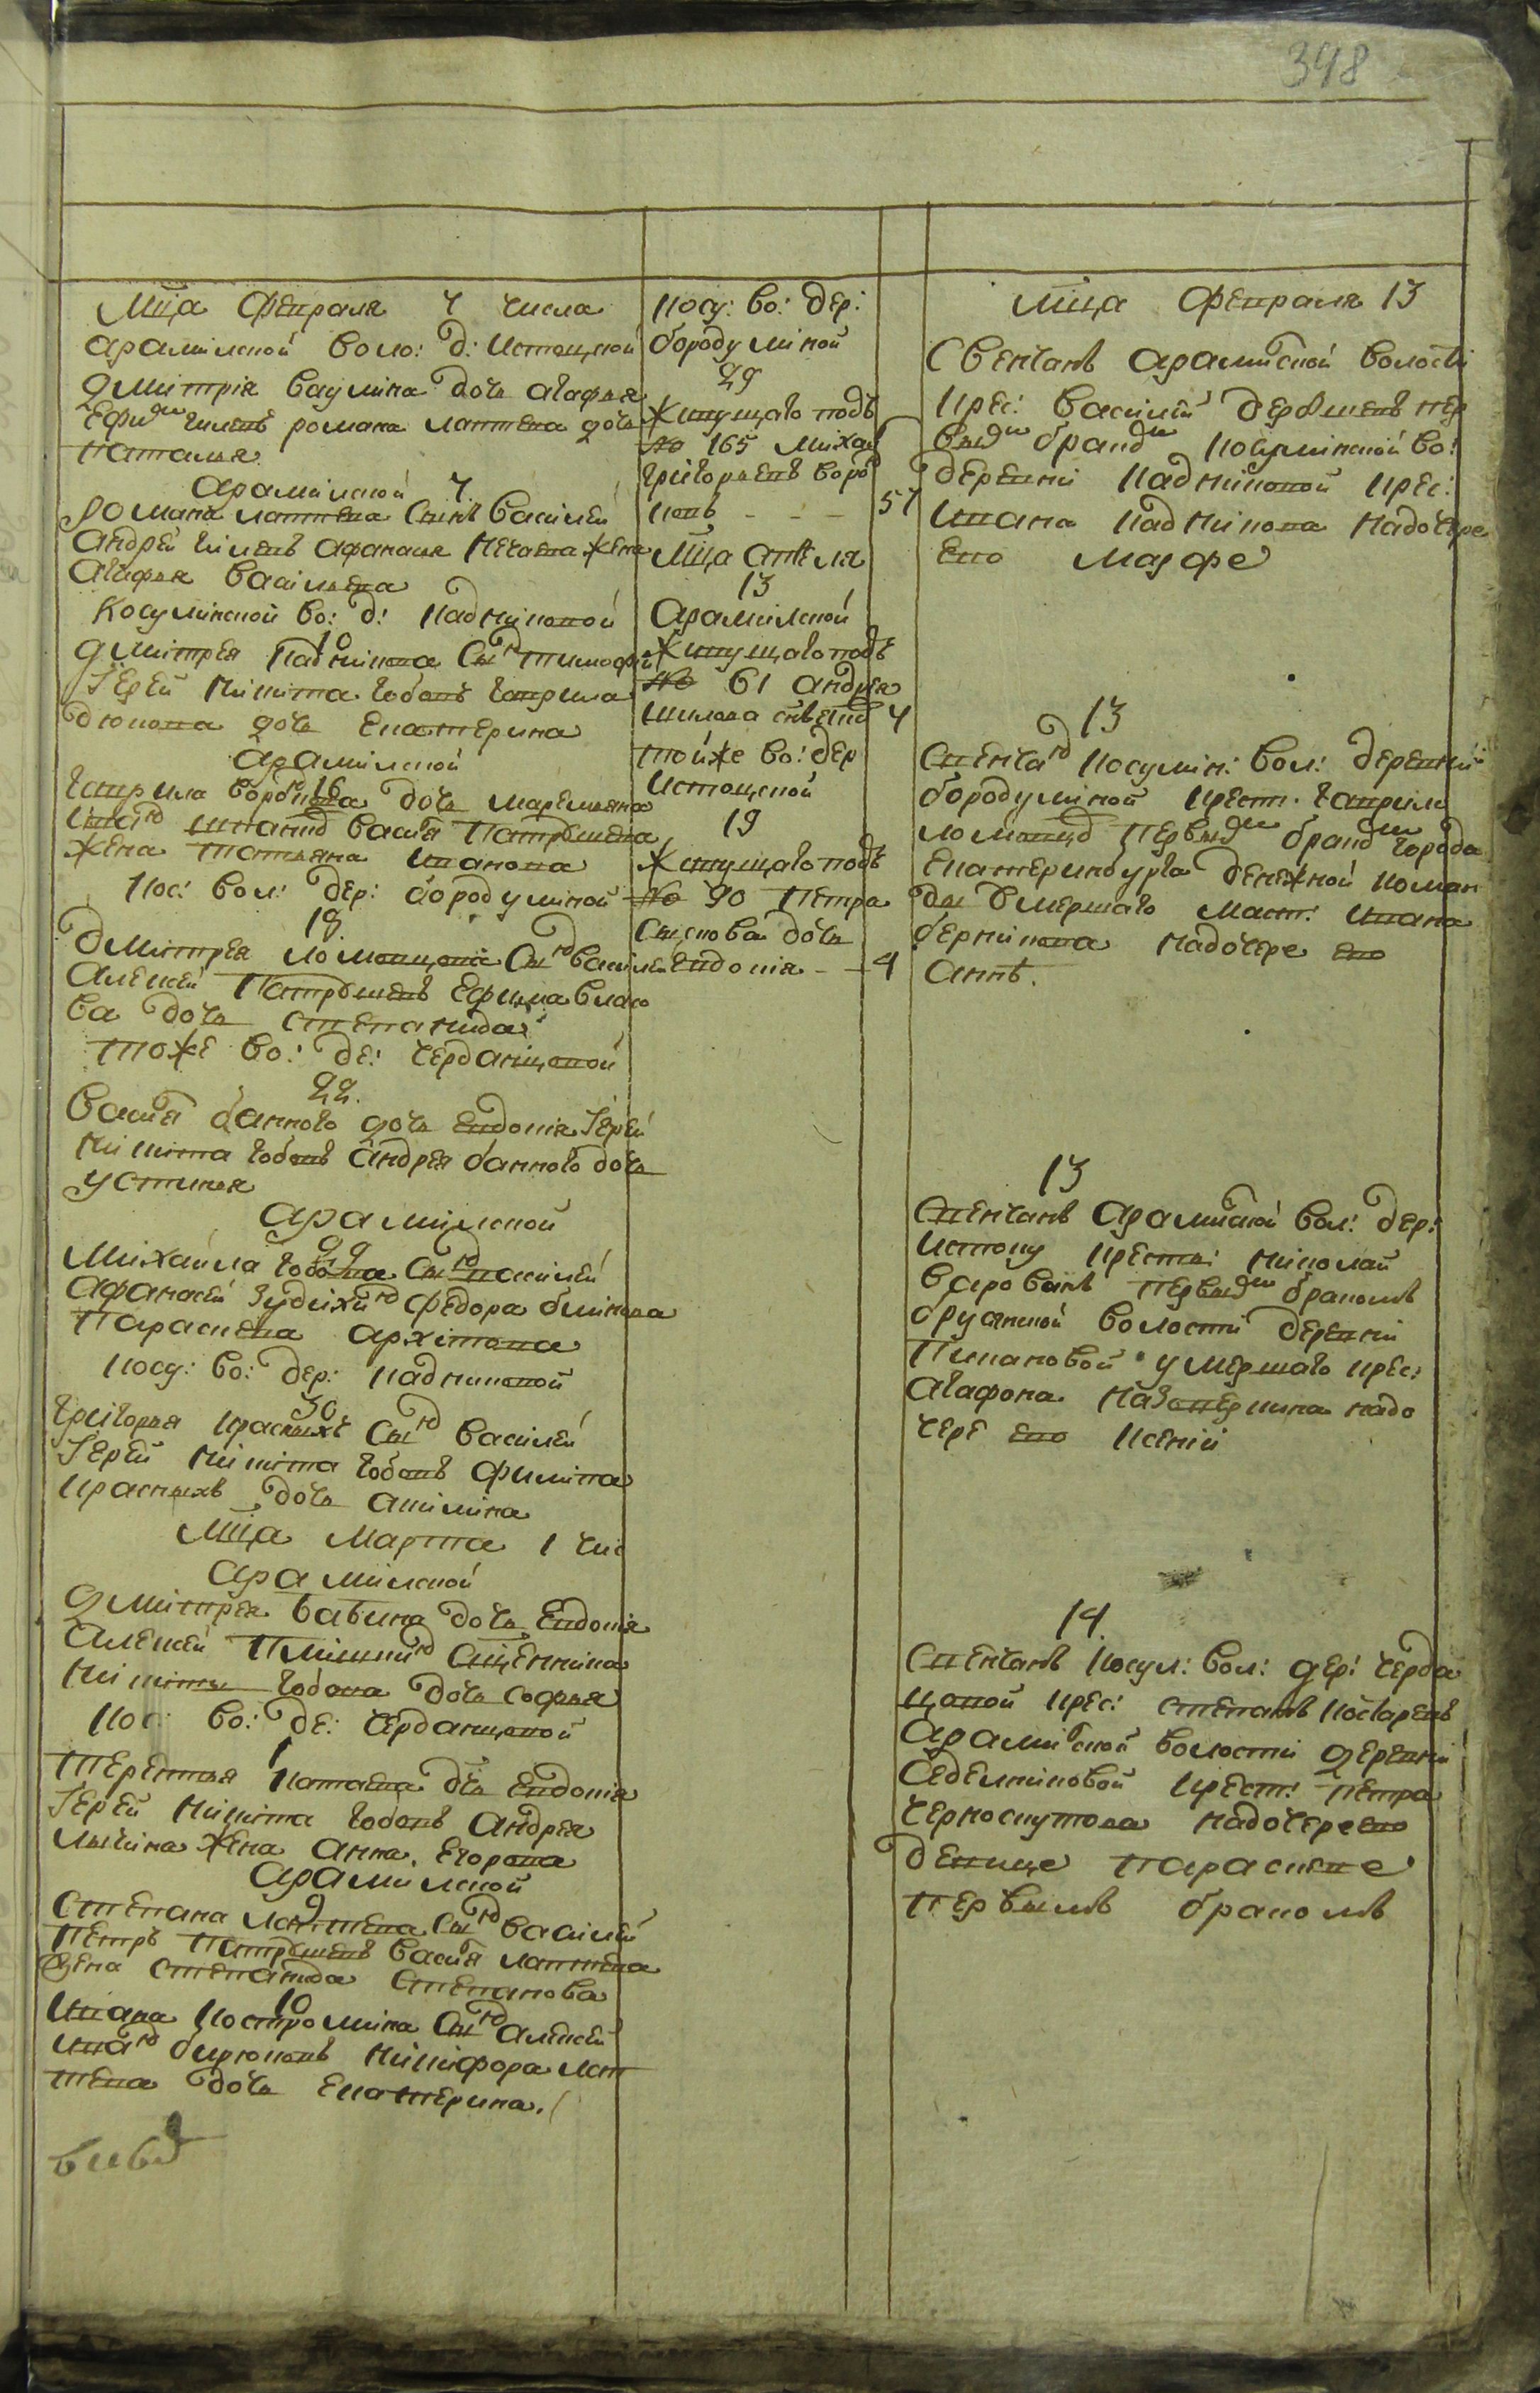 348
Мца Февраля 4 числа
арамилской воло: д: Истоцкой
дмитрия ваулина дочь агафья
Ефим гилевъ романа лаптева дочь
наталья
Арамилской 7
Романа лаптева Сынъ Василей
Андрей гилевъ афанасья Нечаева жена
Агафья васильева
Косулинской во: д: Кадниковой
10
дмитрея Кадникова Сынъ тимофей
Iерей Никита гобовъ гаврила
дюкова дочь Екатерина
Арамилской
16
гаврила воробьева дочь маремьяна
Иванъ васья Патрушева
жена татьяна Иванова
Кос: вол: дер: бородулиной
19
Дмитрея ломовцова Сынъ василей
Алексей Патрушевъ Ефима власо
ва дочь степанида
тоже во: де: чердынцовой
22.
васья банного дочь Евдокия Iерей
Никита гобовъ андрея банного дочь
устинья
Арамилской
29
Михаила гобова Сынъ василей
Афанасей Зудихинъ федора блинова
Параскева архипова
Косу: во: дер: кадниковой
30
григорья красныхъ Сынъ Василей
Iерей Никита гобовъ филипа
красныхъ дочь акилина
Мца Марта 1 чис
Арамилской
дмитрея бабина дочь Евдокия
Алексей Священника
Никиты гобова дочь софья
Кос: во: де: Чердынцовой
1
терентья потаева дочь Евдокия
Iерей Никита гобовъ Андрея
лычина жена анна Егорова
Арамилской
9
Степана лаптева Сынъ василей
Петръ Патрушевъ васья лаптева
жена степанида Степанова
10
Ивана Костромина Сынъ алексей
Иванъ бирюковъ Никифора лап
тева дочь Екатерина.
Косу: во: дер:
бородулиной
29
живущаго подъ
№ 165 михай
григорьевъ воро
новъ - - - 57
Мца апреля
13
Арамилской
живущаго подъ
№ 61 андрея
шилова 4
тойже во: дер
Истоцкой
19
живущаго подъ
№ 90 Петра
Сыскова дочь
Евдокия - - 4
Мца Февраля 13
Свенчанъ арамилской волости
крес: василей дерышевъ пер
вымъ бракомъ Косулинской во:
деревни Кадниковой крес:
Ивана Кадникова надочере
ево марфе
13
Свенчанъ косулин: вол: деревни
бородулиной крест: гаврило
ломовцовъ первымъ бракомъ города
Екатеринбурга денежной коман
ды умершаго маст: Ивана
берникова надочере ево
аннѣ.
13
Свенчанъ Арамилской вол: дер:
Истоку кресть: николай
варованъ первымъ бракомъ
брусянской волости деревни
Пикановой умершаго крес:
Агафона надо
чере ево Ксении
14
Свенчанъ Косул: вол: дер: черды
цовой крес: степанъ Косаревъ
Арамилской волости деревни
Седелниковой крест: Петра
черноскутова надочере ево
девице параскеве
первымъ бракомъ